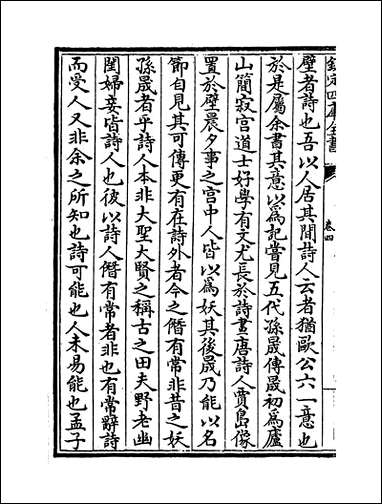 欽定四庫全書
卷四
壁者詩也吾以人居其間詩人云者猶歐公六一意也
於是屬余書其意以為記嘗見五代孫晟傳晟初為廬
山簡寂宮道士好學有文尤長於詩畫唐詩人賈島像
置於壁晨夕事之宮中人皆以為妖其後晟乃能以名
節自見其可傳更有在詩外者今之僭有常非昔之妖
孫晟者乎詩人本非大聖大賢之稱古之田夫野老幽
閨婦妾皆詩人也彼以詩人僭有常者非也有常辭詩
而受人又非余之所知也詩可能也人未易能也孟子